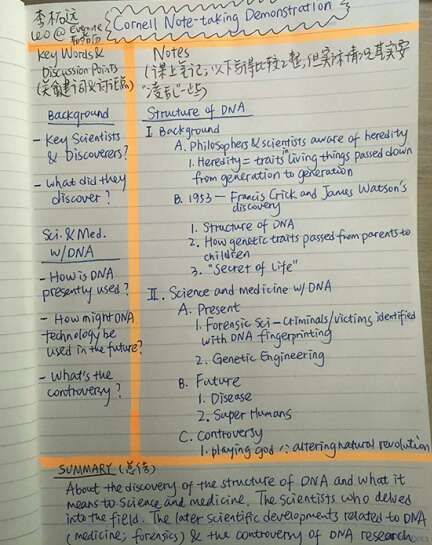 Cornell Note-taking Demonstration
Key Words &
Discussion Points
Notes
Background
- Key Scientists
& Discoverers?
- What did they
discover?
Sci. & Med.
w/ DNA
- How is DNA
presently used?
- How might DNA
technology be
used in the future?
- What's the
controversy?
Structure of DNA
I Background
A. Philosophers & scientists aware of heredity
1. Heredity = "traits" living things passed down
from generation to generation
B. 1953 - Francis Crick and James Watson's
discovery
1. Structure of DNA
2. How genetic traits passed from parents to
children
3. "Secret of Life"
II. Science and medicine w/ DNA
A. Present
1. Forensic Sci - Criminals/victims identified
with DNA fingerprinting
2. Genetic Engineering
B. Future
1. Disease
2. Super Humans
C. Controversy
1. playing god ∵ altering natural revolution
SUMMARY (总结)
About the discovery of the structure of DNA and what it
means to science and medicine. The scientists who delved
into the field. The later scientific developments related to DNA
(medicine; forensics) & the controversy of DNA research